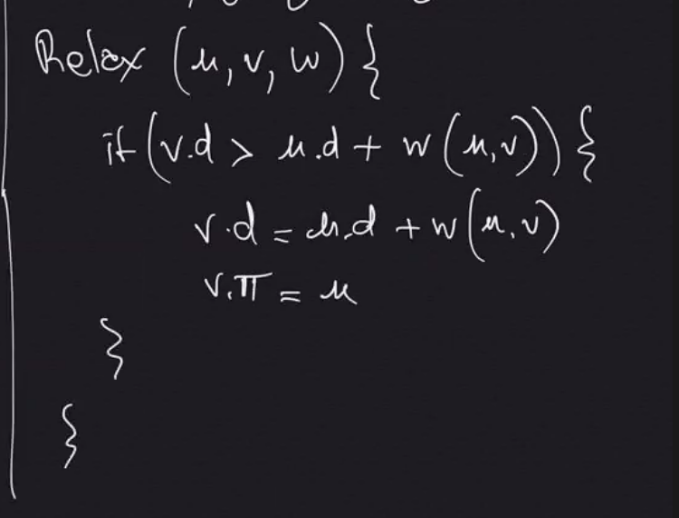 Relax (u, v, w) {
if (v.d > u.d + w (u,v)) {
v.d = u.d + w (u, v)
v.π = u
}
}